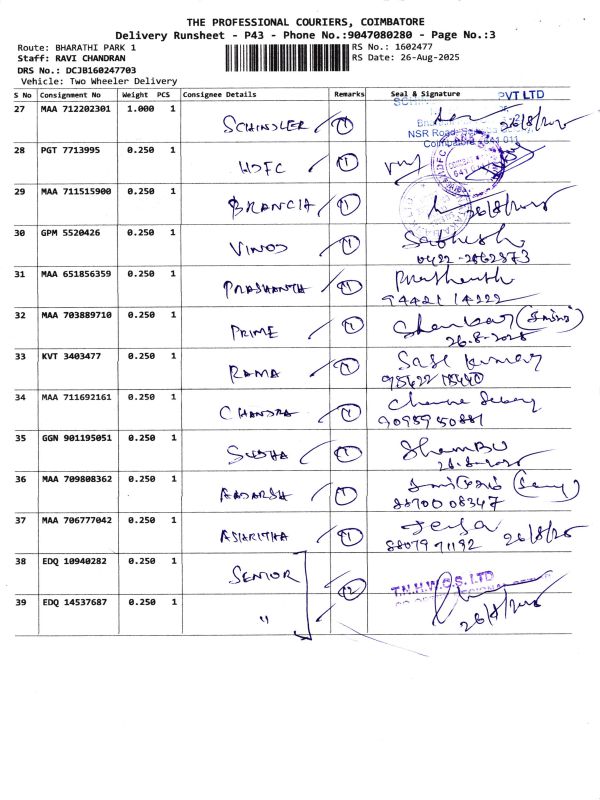 THE PROFESSIONAL COURIERS, COIMBATORE
Delivery Runsheet - P43 - Phone No.:9047080280 - Page No.:3
Route: BHARATHI PARK 1 RS No.: 1602477
Staff: RAVI CHANDRAN RS Date: 26-Aug-2025
DRS No.: DCJB160247703
Vehicle: Two Wheeler Delivery
S No Consignment No Weight PCS Consignee Details Remarks Seal & Signature
PVT LTD
27 MAA 712202301 1.000 1 SCHINDLER 1 26/8/2025
NSR Road
Coimbatore 641 011
28 PGT 7713995 0.250 1 HDFC 1
29 MAA 711515900 0.250 1 BRANCIA 1 26/8/2025
30 GPM 5520426 0.250 1 VINOD 1
0422-2462873
31 MAA 651856359 0.250 1 PRASHANTH 1 Prashanth
94421 14222
32 MAA 703889710 0.250 1 PRIME 1 Shankar
26.8.2025
33 KVT 3403477 0.250 1 RAMA 1 Sasi Kumar
34 MAA 711692161 0.250 1 CHANDRA 1
9095950881
35 GGN 901195051 0.250 1 SUDHA 1 ShamBU
26.8.2025
36 MAA 709808362 0.250 1 AADARSH 1
8870008347
37 MAA 706777042 0.250 1 1 26/8/25
38 EDQ 10940282 0.250 1 SENIOR 2
T.N.H.W.C.S. LTD
39 EDQ 14537687 0.250 1 " 26/8/2025